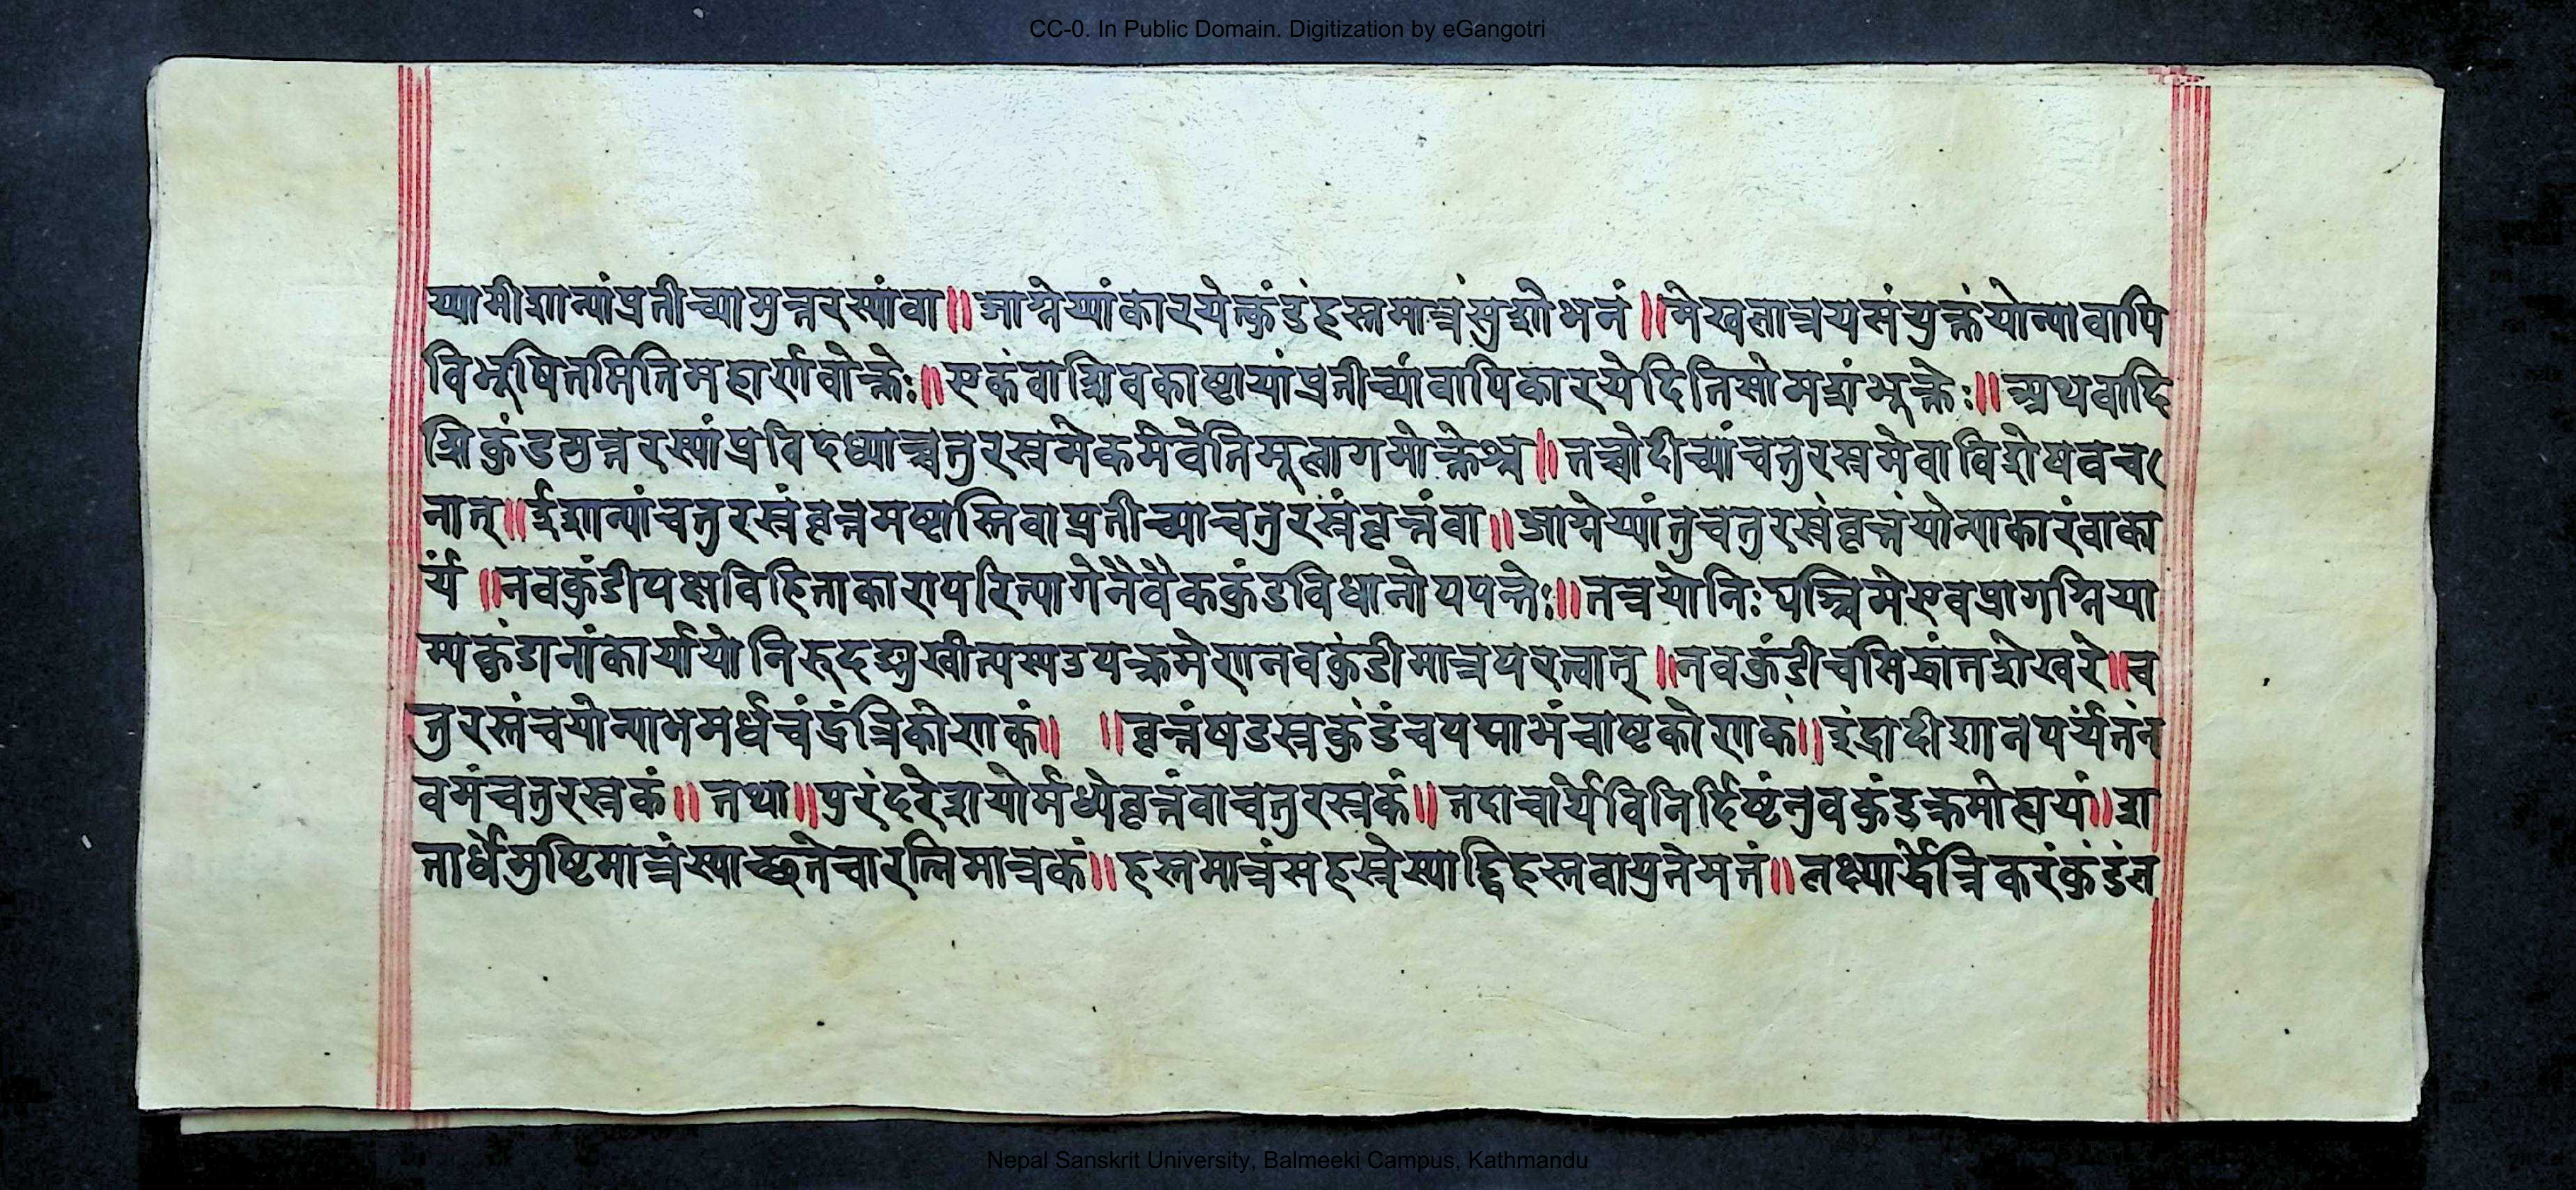 CC-0. In Public Domain. Digitization by eGangotri
य्यामीशान्यांप्रतीच्यामुत्तरस्यांवा॥आग्नेय्यांकारयेत्कुंडंहस्तमात्रंसुशोभनं॥मेखलात्रयसंयुक्तंयोन्यावापि
विभूषितमितिमहार्णवोक्तेः॥एकंवाशिवकाष्टायांप्रतीच्यांवापिकारयेदितिसोमशंभूक्तेः॥अथवादि
शिकुंडमुत्तरस्यांप्रविदध्याच्चतुरस्रमेकमेवेतिमूलागमोक्तेश्च॥तच्चोदीच्यांचतुरस्रमेवाविशेषवच
नात्॥ईशान्यांचतुरस्रंवृत्तमष्टास्तिवाप्रतीच्याचतुरस्रंवृत्तंवा॥आग्नेय्यांतुचतुरस्रंवृत्तंयोन्याकारंवाका
र्यं॥नवकुंडीपक्षविहिताकारापरित्यागेनैवैककुंडविधानोपपत्तेः॥तत्रयोनिःपश्चिमेएवप्रागग्निया
म्यकुंडानांकार्यायोनिरुदङ्मुखीत्यस्यउपक्रमेणनवकुंडीमात्रपरत्वात्॥नवकुंडीचसिद्धांतशेखरे॥च
तुरस्तंचयोन्याभमर्धचंद्रंत्रिकोणकं॥ ॥वृत्तंषडस्रकुंडंचपद्माभंचाष्टकोणकं॥इंद्रादीशानपर्यंतंन
वमंचतुरस्रकं॥तथा॥पुरंदरेशयोर्मध्येवृत्तंवाचतुरस्रकं॥तदाचार्यविनिर्दिष्टंनुवकुंडक्रमोह्ययं॥श
तार्धेमुष्टिमात्रंस्याच्छतेचारत्निमात्रकं॥हस्तमात्रंसहस्रेस्याद्द्विहस्तवायुतेमतं॥लक्ष्यार्द्धेत्रिकरंकुंडंल
Nepal Sanskrit University, Balmeeki Campus, Kathmandu